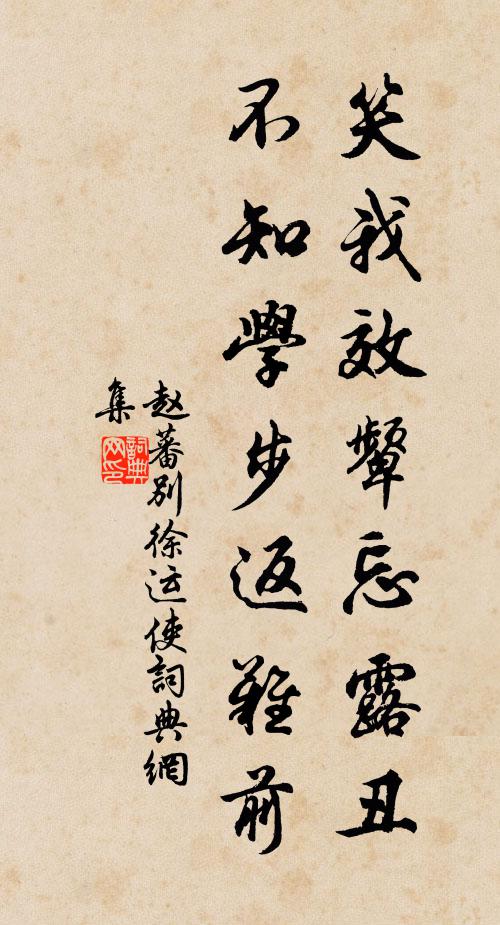 笑我效顰忘露丑
不知學步返難前
赵蕃别徐运使詞典網
集
詞典
网印